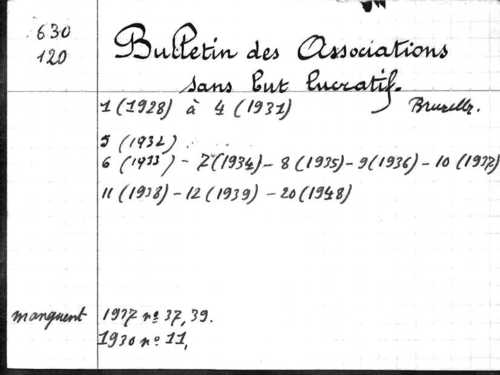 630
120
Bulletin des Associations
sans but lucratif.
1 (1928) à 4 (1931) Bruxelles.
5 (1932)
6 (1933) - 7 (1934) - 8 (1935) - 9 (1936) - 10 (1937)
11 (1938) - 12 (1939) - 20 (1948)
manquent 1937 nº 37, 39.
1930 nº 11,